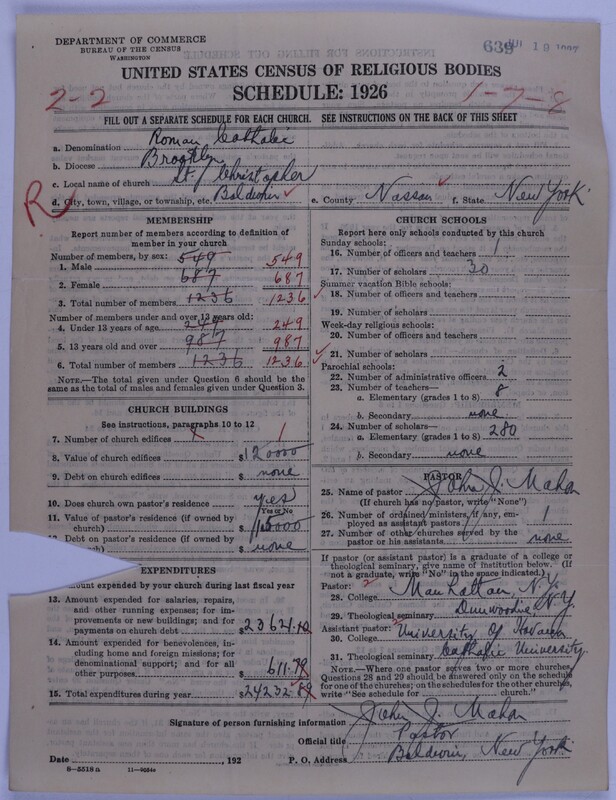 DEPARTMENT OF COMMERCE
BUREAU OF THE CENSUS
WASHINGTON
639
UNITED STATES CENSUS OF RELIGIOUS BODIES
SCHEDULE: 1926
2-2
1-7-8
FILL OUT A SEPARATE SCHEDULE FOR EACH CHURCH. SEE INSTRUCTIONS ON THE BACK OF THIS SHEET
a. Denomination Roman Catholic
b. Diocese Brooklyn
c. Local name of church St. Christopher
R
d. City, town, village, or township, etc. Baldwin e. County Nassau f. State New York
MEMBERSHIP
Report number of members according to definition of
member in your church
Number of members, by sex:
1. Male 549 549
2. Female 687 687
3. Total number of members 1236 1236
Number of members under and over 13 years old:
4. Under 13 years of age 249 249
5. 13 years old and over 987 987
6. Total number of members 1236 1236
NOTE.—The total given under Question 6 should be
same as the total of males and females given under Question 3.
CHURCH BUILDINGS
See instructions, paragraphs 10 to 12
7. Number of church edifices 1
8. Value of church edifices $120000
9. Debt on church edifices $ none
10. Does church own pastor's residence? yes
Yes or No
11. Value of pastor's residence (if owned by
church) $
Debt on pastor's residence (if owned by
church) $ none
EXPENDITURES
Amount expended by your church during last fiscal year
13. Amount expended for salaries, repairs,
and other running expenses; for im-
provements or new buildings; and for
payments on church debt $
14. Amount expended for benevolences, in-
cluding home and foreign missions; for
denominational support; and for all
other purposes $
15. Total expenditures during year $
CHURCH SCHOOLS
Report here only schools conducted by this church
Sunday schools:
16. Number of officers and teachers 1
17. Number of scholars 30
Summer vacation Bible schools:
18. Number of officers and teachers
19. Number of scholars
Week-day religious schools:
20. Number of officers and teachers
21. Number of scholars
Parochial schools:
22. Number of administrative officers 2
23. Number of teachers—
a. Elementary (grades 1 to 8) 8
b. Secondary none
24. Number of scholars—
a. Elementary (grades 1 to 8) 280
b. Secondary none
PASTOR
25. Name of pastor John J. Mahon
(If church has no pastor, write "None")
26. Number of ordained ministers, if any, em-
ployed as assistant pastors 1
27. Number of other churches served by the
pastor or his assistants none
If pastor (or assistant pastor) is a graduate of a college or
theological seminary, give name of institution below. (If
not a graduate, write "No" in the space indicated.)
Pastor:
28. College Manhattan, N.Y.
29. Theological seminary Dunwoodie N.Y.
Assistant pastor:
30. College University of Havana
31. Theological seminary Catholic University
NOTE.—Where one pastor serves two or more churches,
Questions 28 and 29 should be answered only on the schedule
for one of the churches; on the schedules for the other churches,
write "See schedule for church."
Signature of person furnishing information John J. Mahon
Official title Pastor
Date , 192 P. O. Address Baldwin, New York
8—5518 a